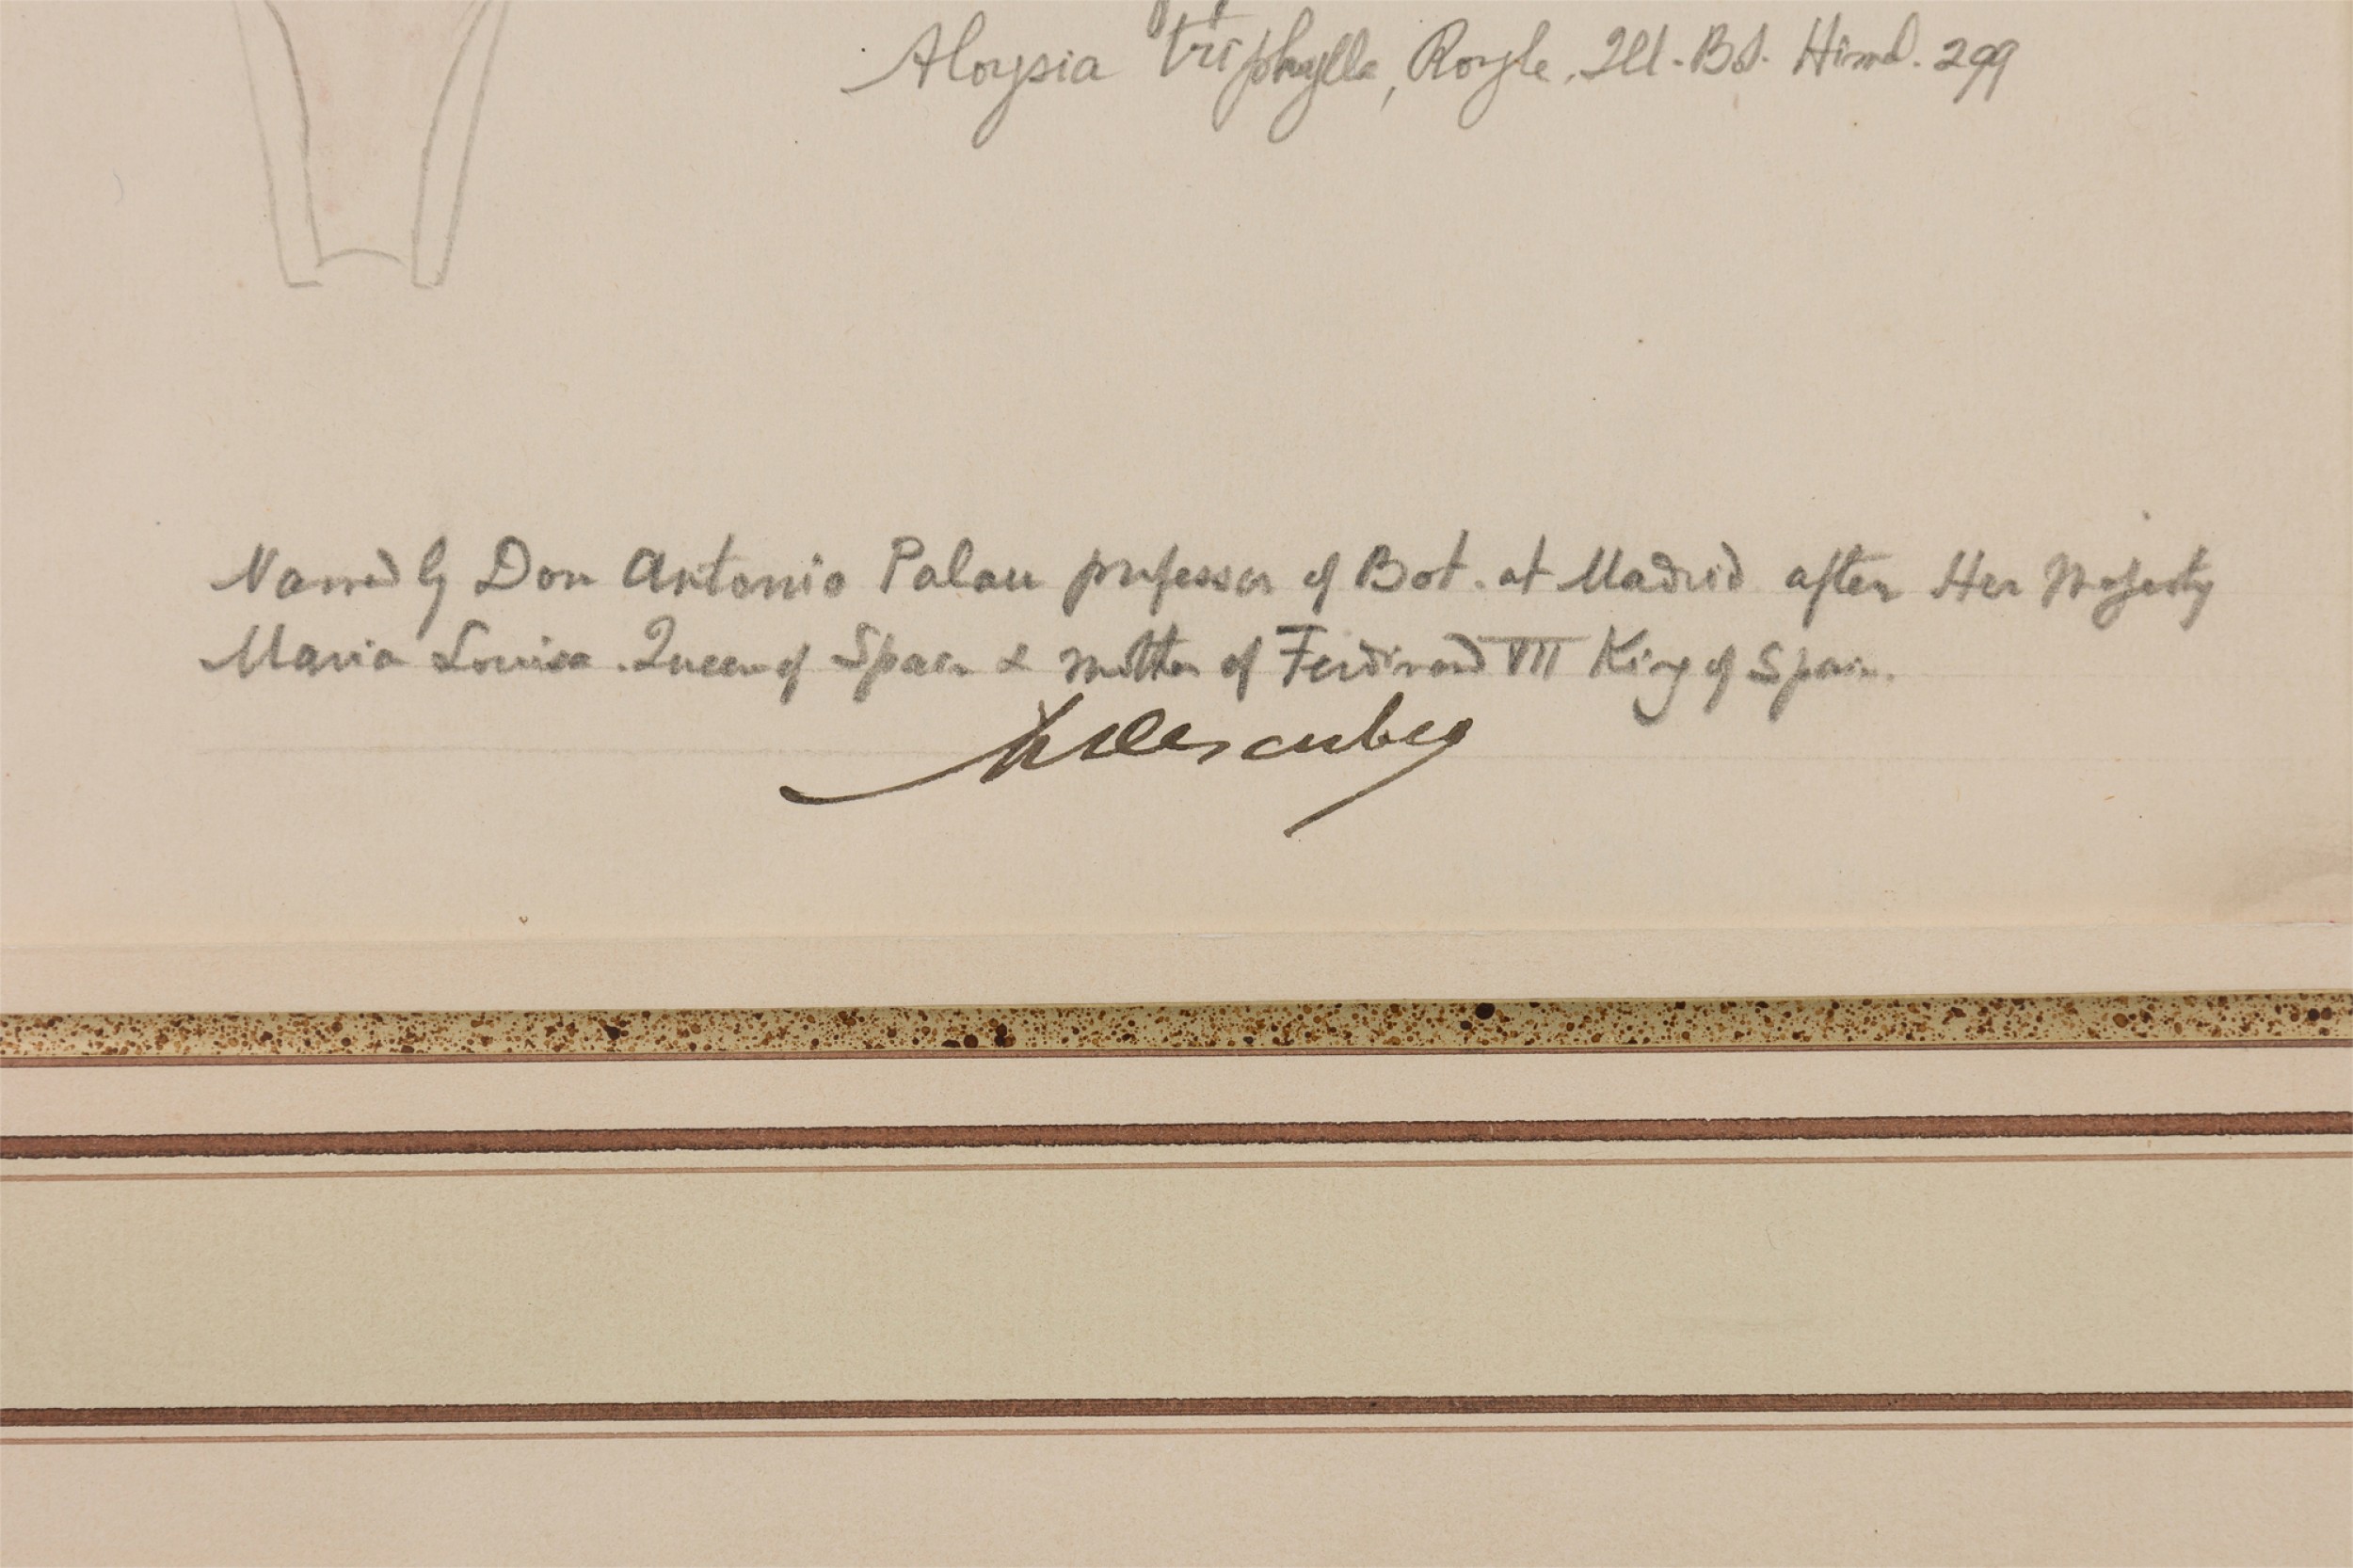 Aloysia triphylla, Royle. Ill. Bot. Himal. 299
Named by Don Antonio Palau professor of Bot. at Madrid after Her Majesty
Maria Louisa. Queen of Spain & mother of Ferdinand VII King of Spain.